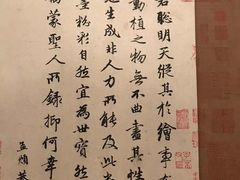 君聰明天縱其於繪事
動植之物無不曲盡其性
生成非人力所能及此
墨粉彩自然宜為世寶然
蒙聖人所錄抑何幸
孟頫